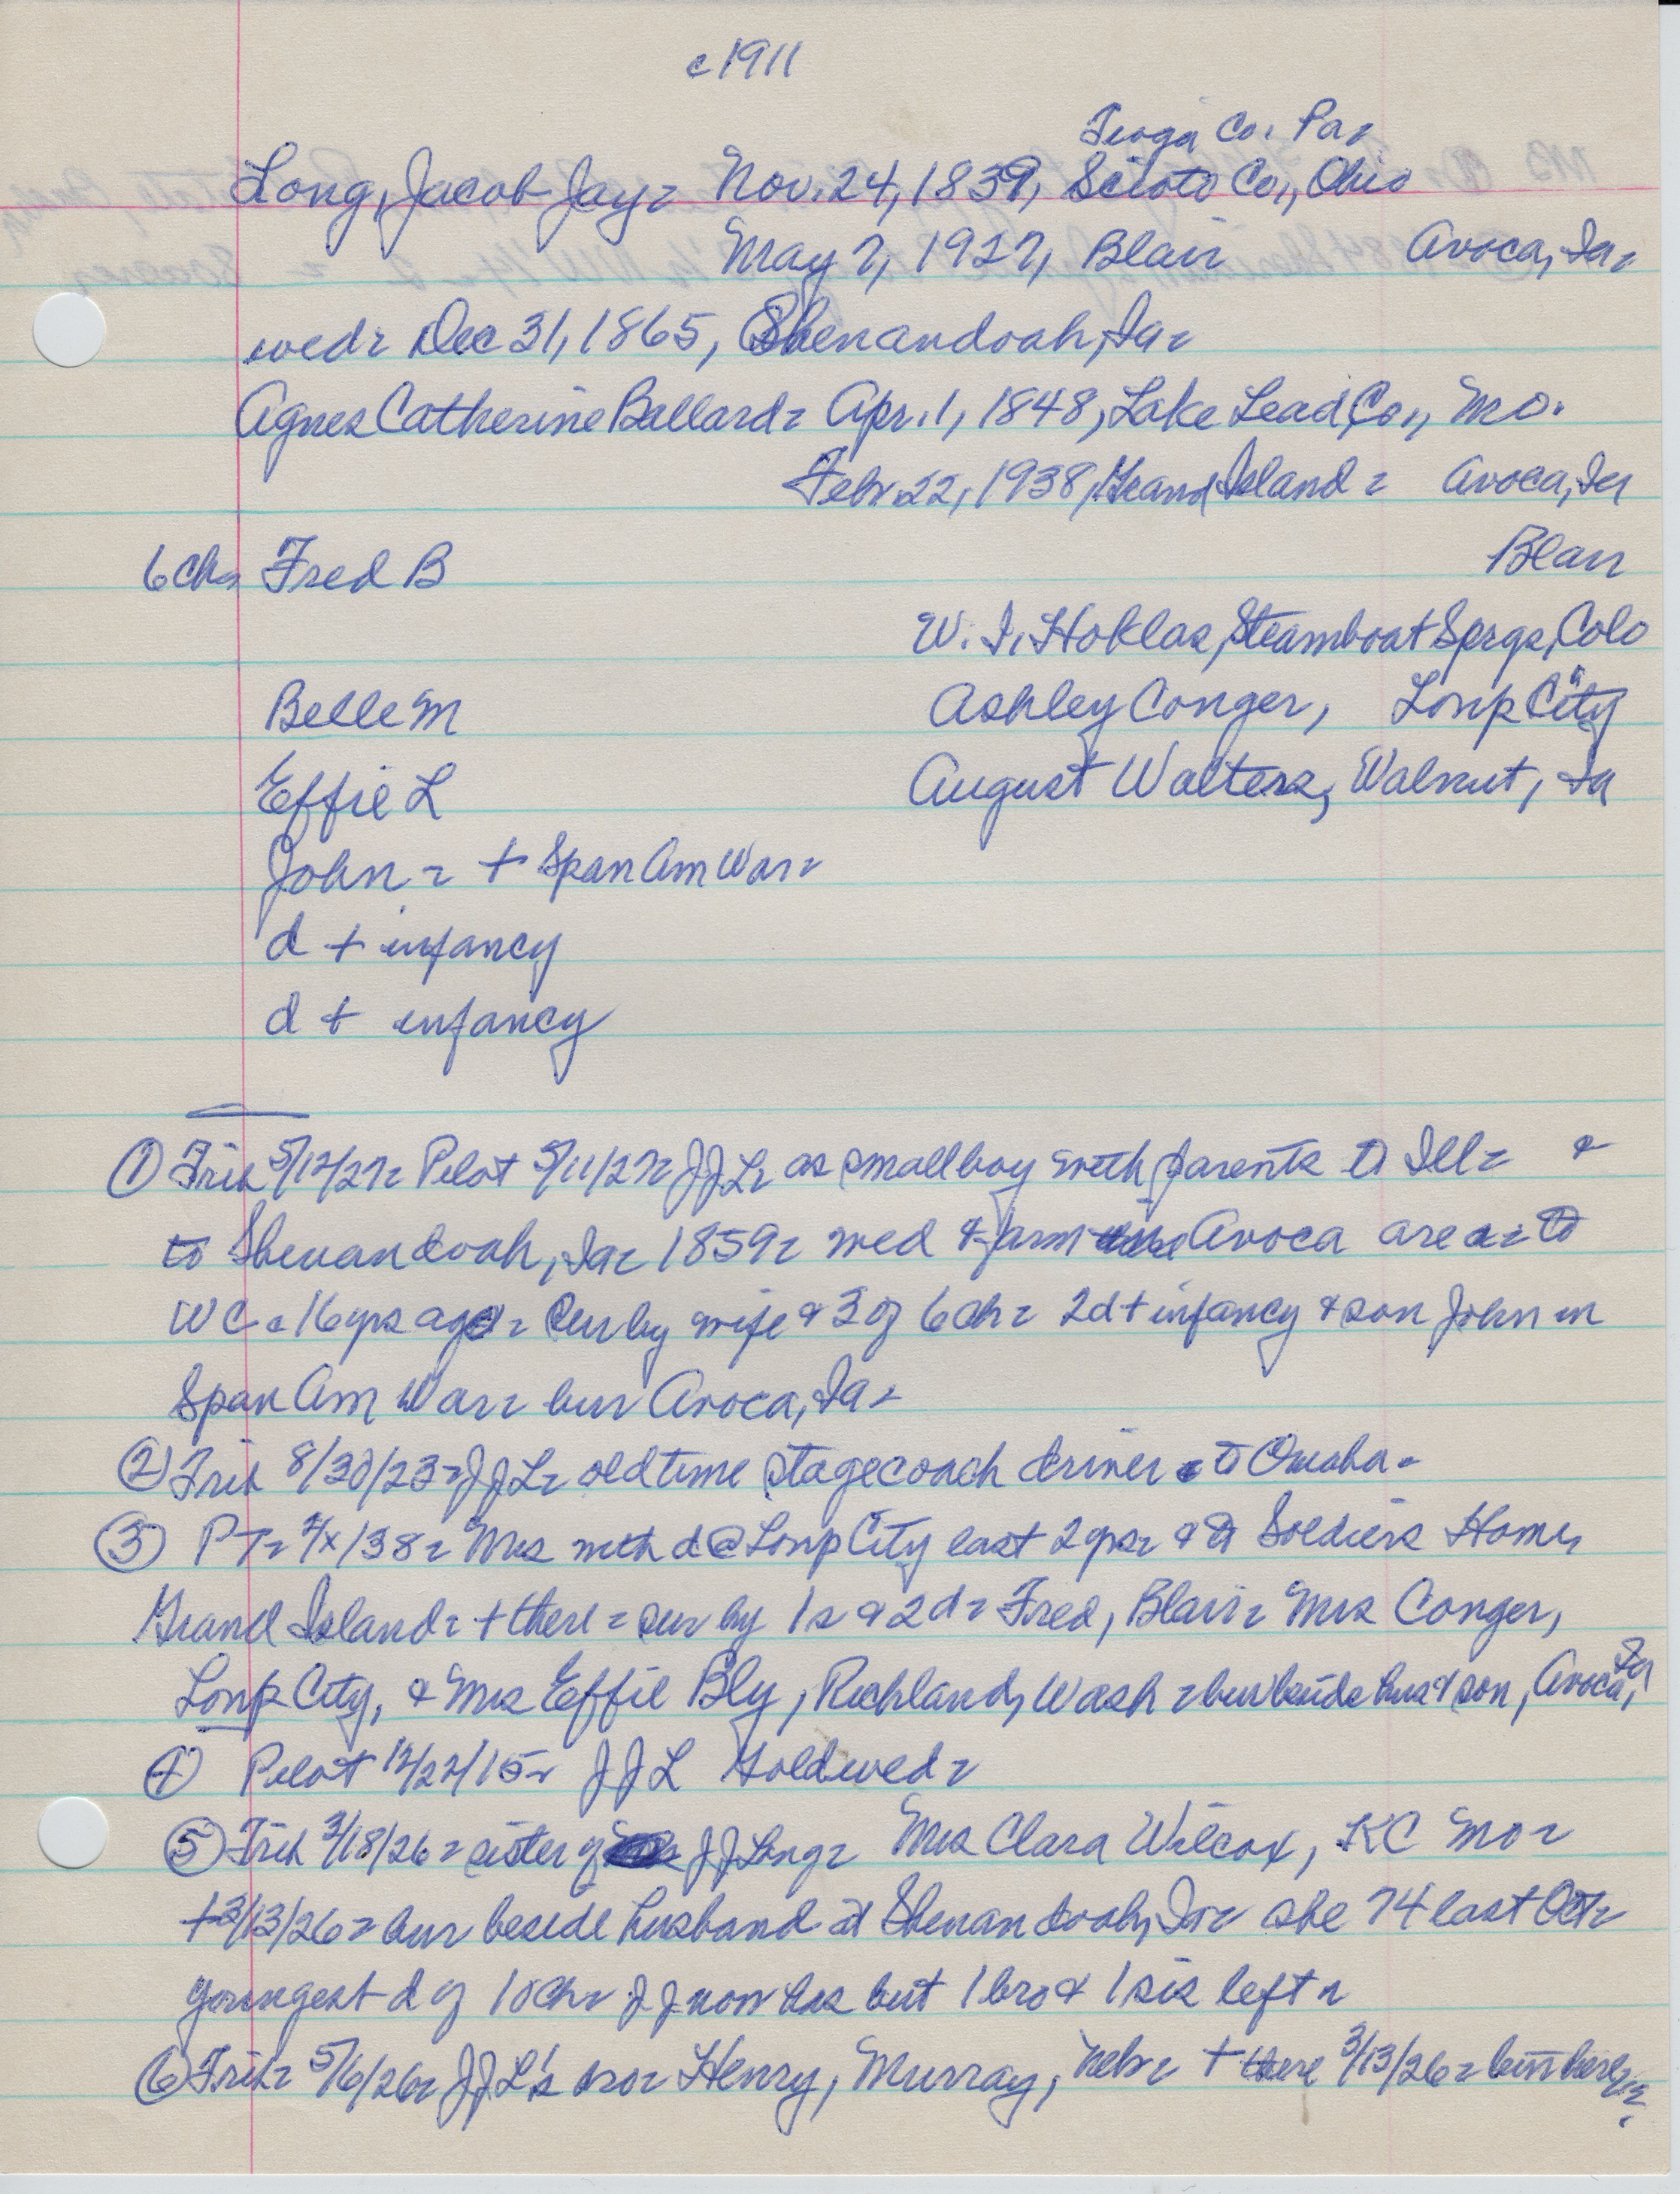 c1911
Tioga Co. Pa-
Long, Jacob Jay- Nov. 24, 1839, Scioto Co., Ohio
May 7, 1927, Blair Avoca, Ia-
wed- Dec 31, 1865, Shenandoah, Ia-
Agnes Catherine Ballard- Apr. 1, 1848, Lake Lead, Co., Mo.
Febr. 22, 1938, Grand Island- Avoca, Ia
6 ch- Fred B Blair
W. I. Hoklas, Steamboat Sprgs, Colo
Belle M Ashley Conger, Loup City
Effie L August Walters, Walnut, Ia
John - + Span Am War-
d + infancy
d + infancy
① Trib 5/12/27- Pilot 5/11/27- JJL- as small boy with parents to Ill- &
to Shenandoah, Ia- 1859- wed & farm Avoca area- to
WC c 16 yrs ago- sur by wife & 3 of 6 ch- 2d + infancy & son John in
Span Am War- bur Avoca, Ia-
② Trib 8/30/23- JJL- oldtime stagecoach driver to Omaha-
③ PT- 2/x/38- Mrs with d @ Loup City last 2 yrs- & to Soldiers Home,
Grand Island- + there- sur by 1s & 2d- Fred, Blair- Mrs Conger,
Loup City, & Mrs Effie Bly, Richland, Wash- bur beside hus & son, Avoca, Ia
④ Pilot 12/22/15- JJL Goldwed-
⑤ Trib 3/18/26- sister of JJ Long- Mrs Clara Wilcox, KC Mo-
+ 3/13/26- bur beside husband at Shenandoah, Ia- she 74 last Oct-
youngest d of 10 ch- JJ now has but 1 bro & 1 sis left-
⑥ Trib- 5/6/26- JJL's bro- Henry, Murray, Nebr- + there 3/13/26- bur here-?